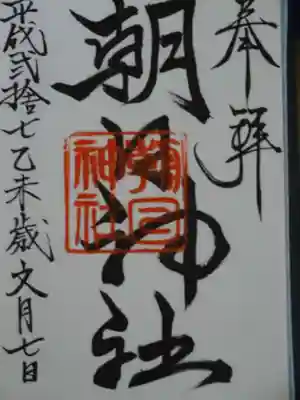 奉拝
朝日神社
朝日神社
平成弐拾七乙未歳文月七日